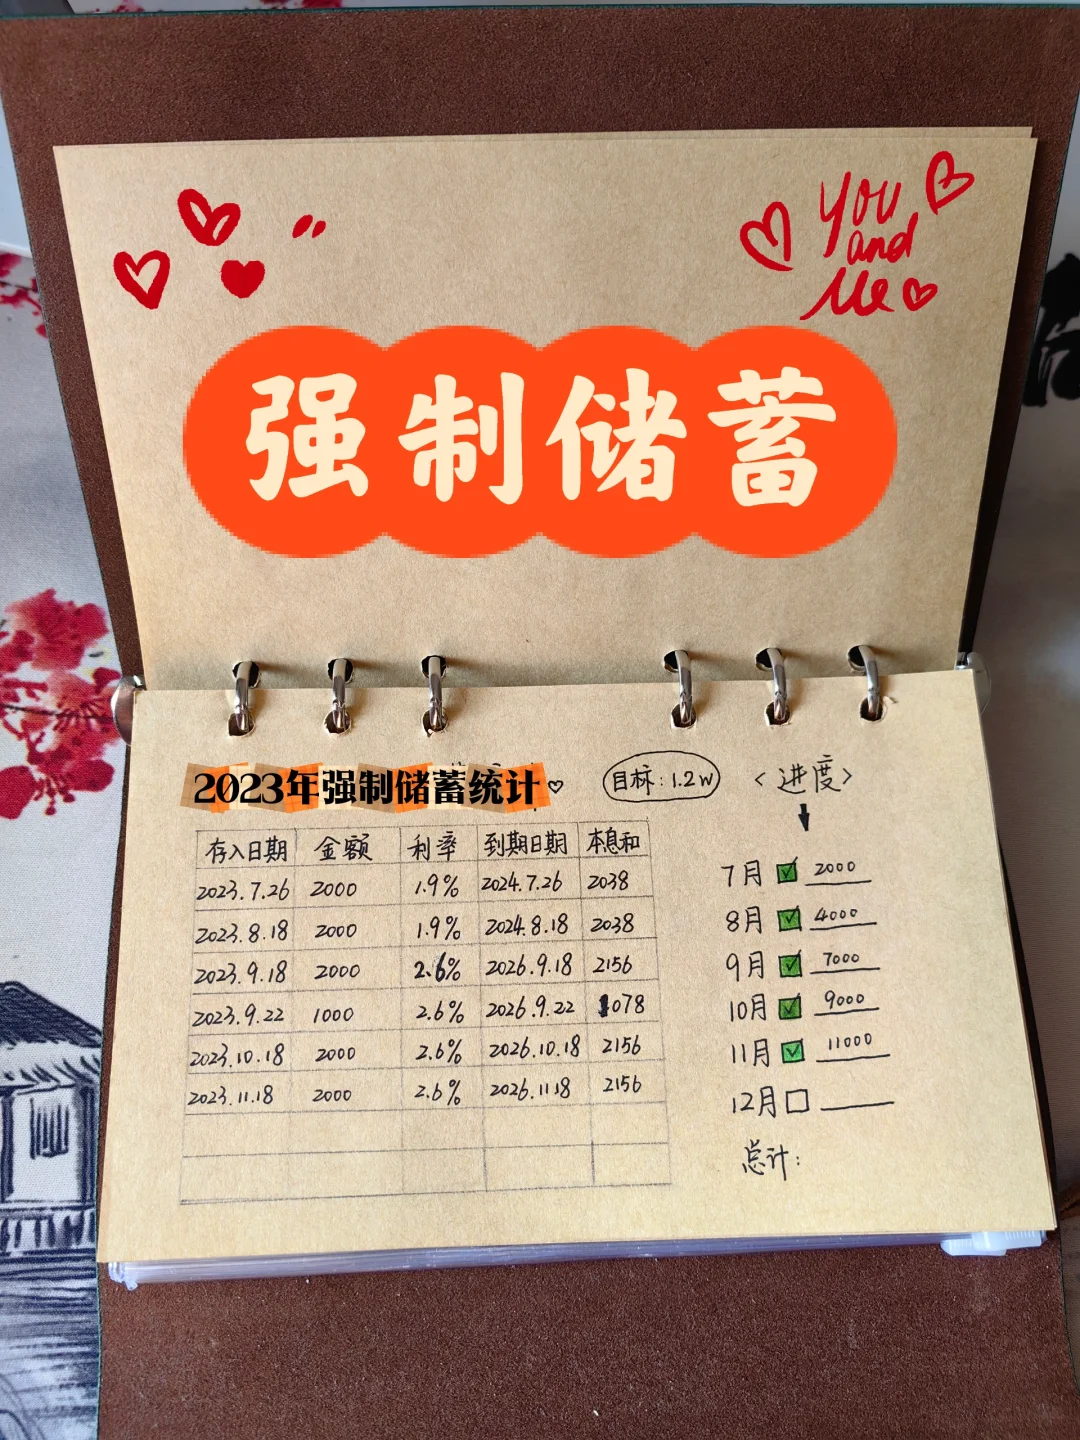 You
and
Me
强制储蓄
2023年强制储蓄统计
目标:1.2w
<进度>
存入日期 金额 利率 到期日期 本息和
2023.7.26 2000 1.9% 2024.7.26 2038
2023.8.18 2000 1.9% 2024.8.18 2038
2023.9.18 2000 2.6% 2026.9.18 2156
2023.9.22 1000 2.6% 2026.9.22 1078
2023.10.18 2000 2.6% 2026.10.18 2156
2023.11.18 2000 2.6% 2026.11.18 2156
7月 2000
8月 4000
9月 7000
10月 9000
11月 11000
12月
总计: